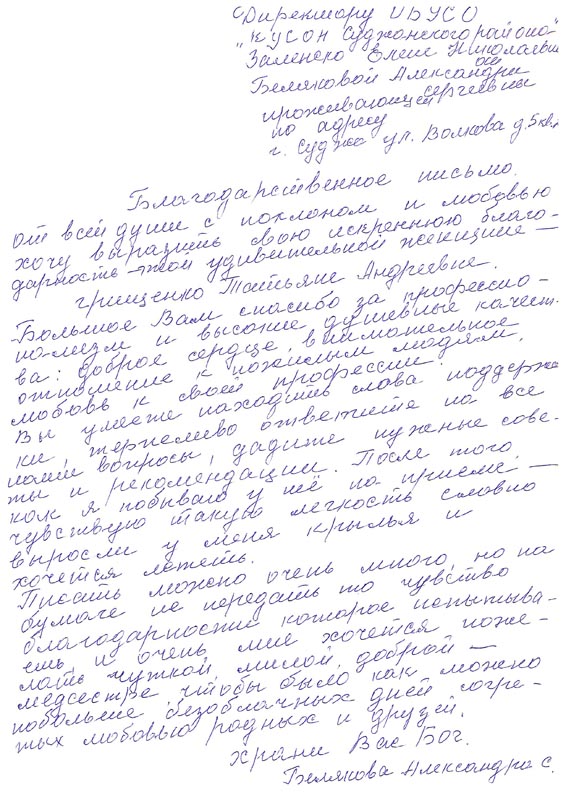 Директору ОБУСО
"КЦСОН Суджанского района"
Заленско Елене Николаевне
Беляковой Александры
ой
проживающей Сергеевны
по адресу
г. Суджа ул. Волкова д.5 кв.1
Благодарственное письмо.
От всей души с поклоном и любовью
хочу выразить свою искреннюю благо-
дарность этой удивительной женщине —
Грищенко Татьяне Андреевне.
Большое Вам спасибо за профессио-
нализм и высокие душевные качест-
ва: доброе сердце, внимательное
отношение к пожилым людям,
любовь к своей профессии.
Вы умеете находить слова поддерж
ки, терпеливо ответите на все
наши вопросы, дадите нужные сове-
ты и рекомендации. После того,
как я побываю у неё на приёме —
чувствую такую легкость словно
выросли у меня крылья и
хочется лететь.
Писать можно очень много, но на
бумаге не передать то чувство
благодарности которое испытыва-
ешь и очень мне хочется поже-
лать чуткой милой, доброй —
медсестре, чтобы было как можно
побольше безоблачных дней согре-
тых любовью родных и друзей.
Храни Вас Бог.
Белякова Александра С.